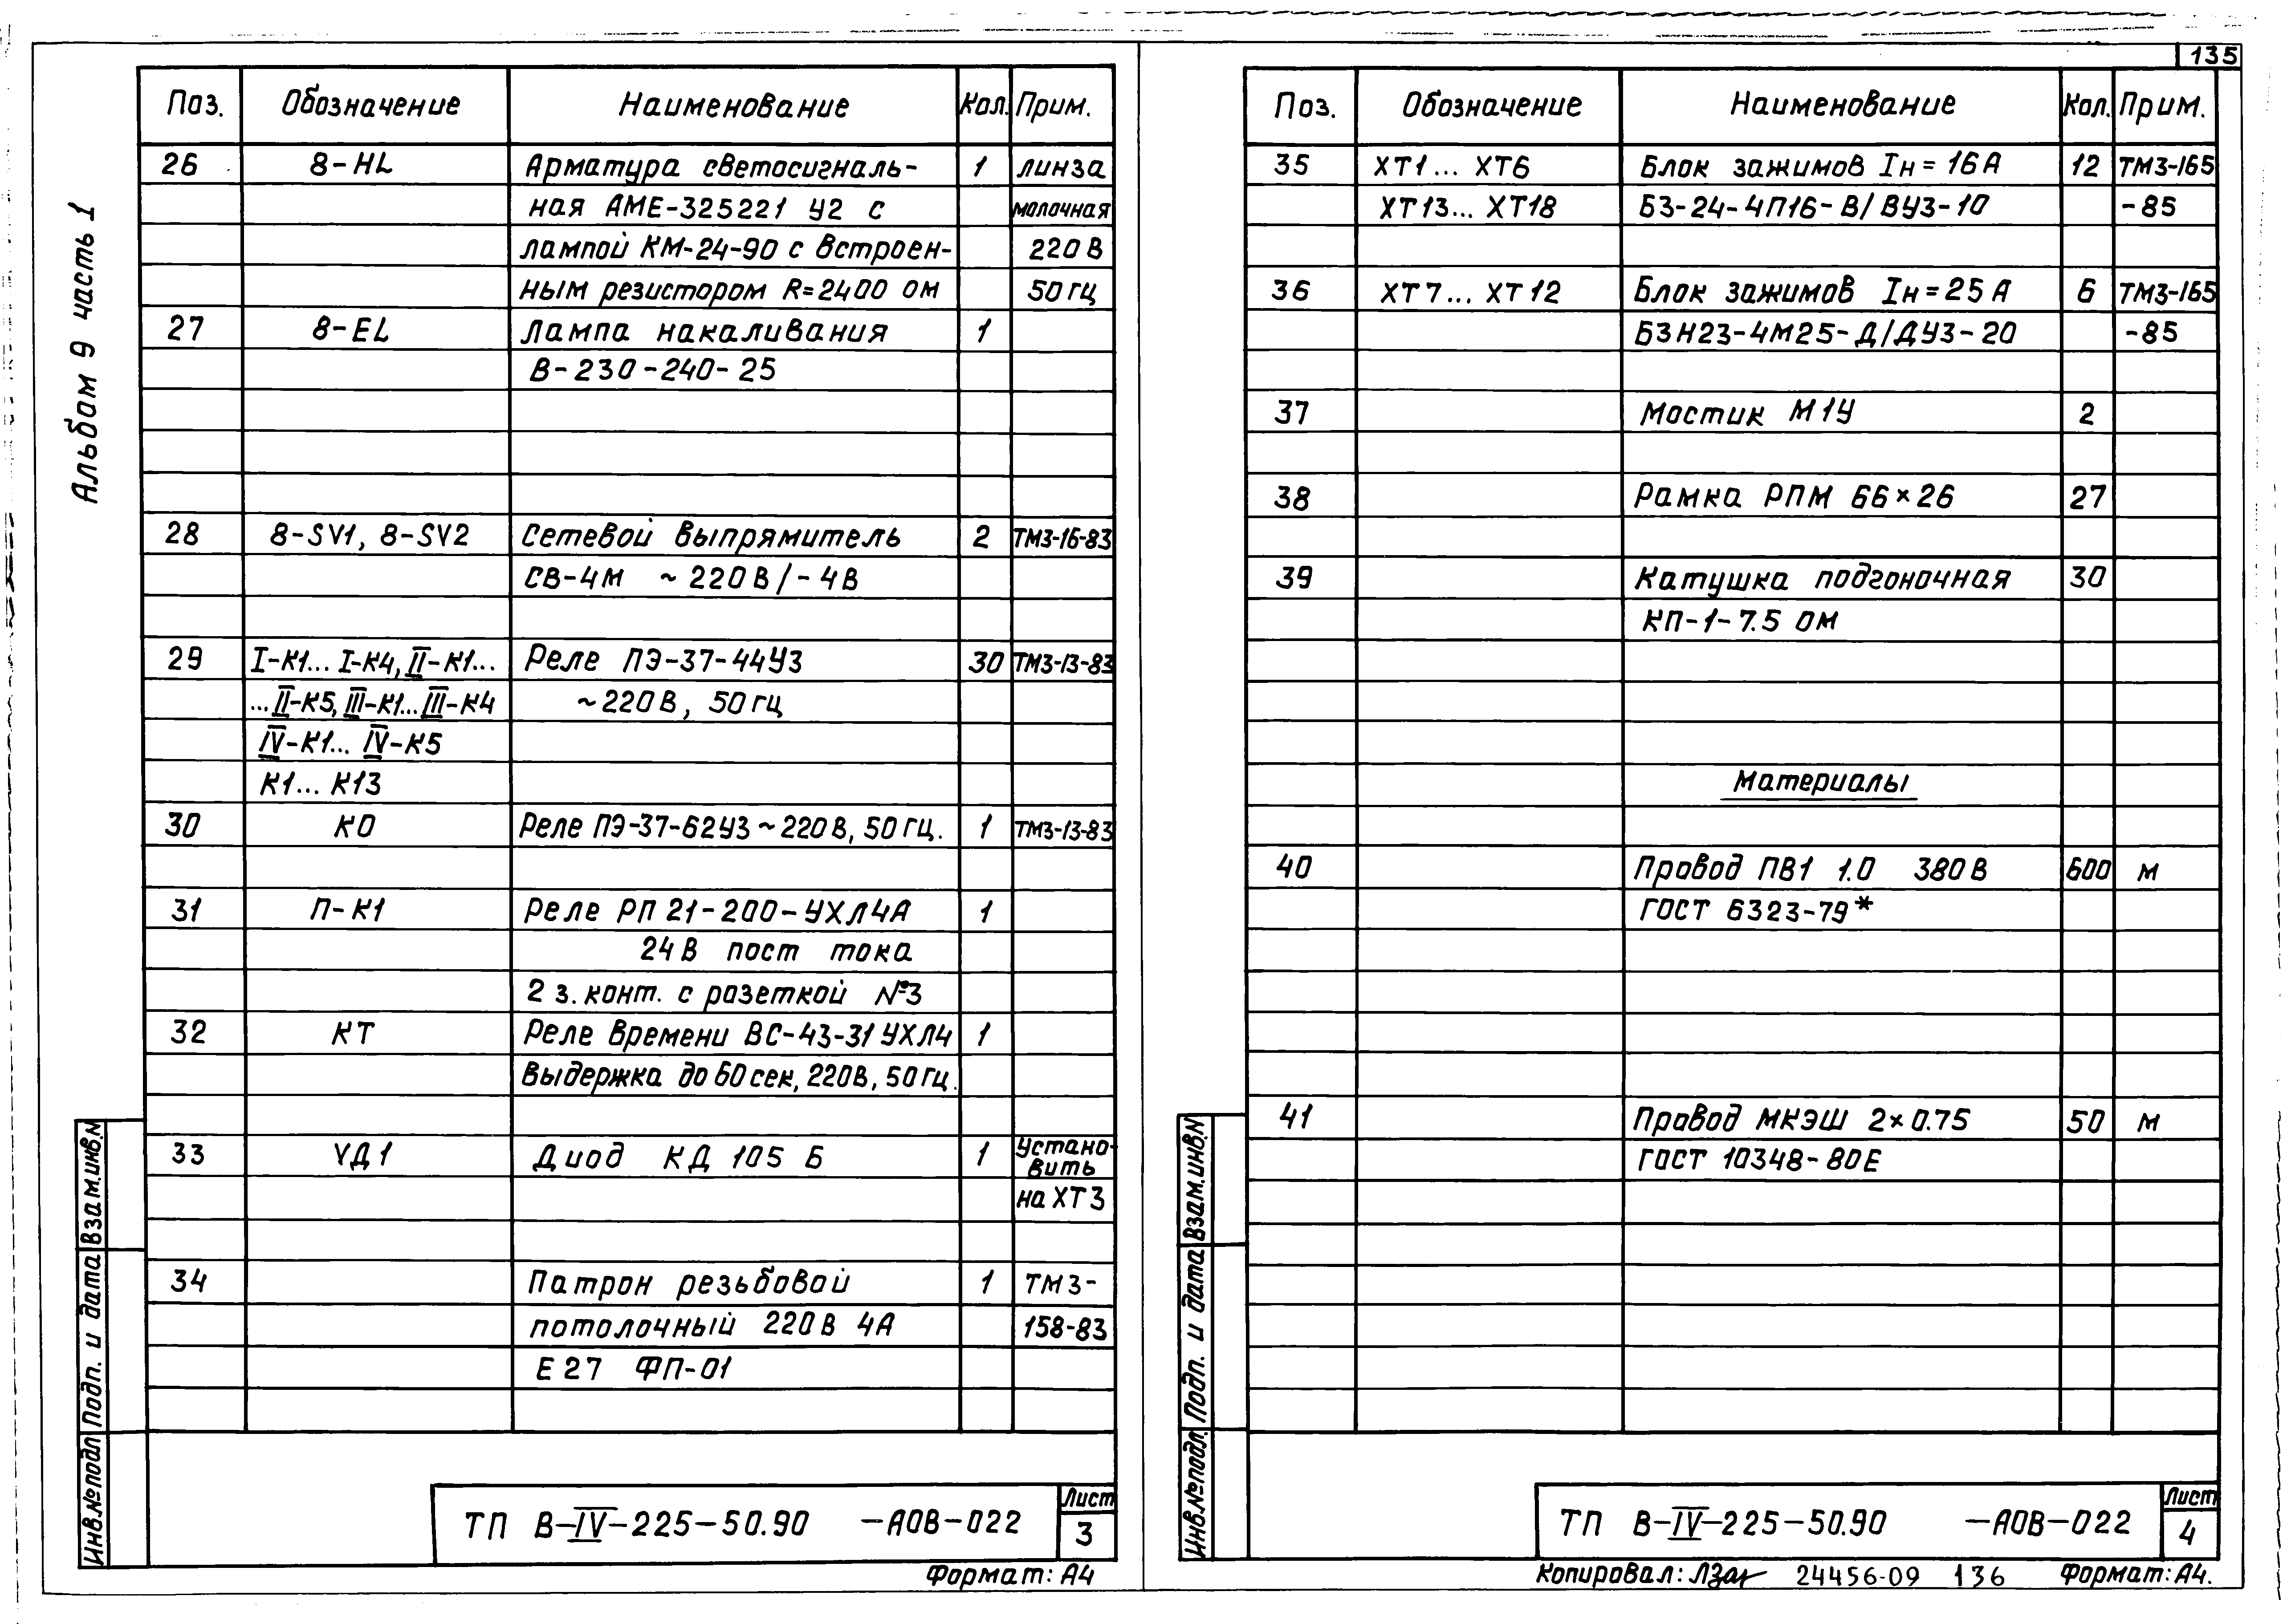 135
Альбом 9 часть 1
Поз. Обозначение Наименование Кол. Прим.
26 8-HL Арматура светосигналь- 1 линза
ная АМЕ-325221 У2 с молочная
лампой КМ-24-90 с встроен- 220 В
ным резистором R=2400 ом 50 гц
27 8-EL Лампа накаливания 1
В-230-240-25
28 8-SV1, 8-SV2 Сетевой выпрямитель 2 ТМ3-16-83
СВ-4М ~220В/-4В
29 I-К1... I-К4, II-К1... Реле ПЭ-37-44У3 30 ТМ3-13-83
...II-К5, III-К1...III-К4 ~220 В, 50 гц
IV-К1... IV-К5
К1... К13
30 КО Реле ПЭ-37-62У3 ~220 В, 50 гц. 1 ТМ3-13-83
31 П-К1 Реле РП 21-200-УХЛ4А 1
24 В пост тока
2 з. конт. с розеткой №3
32 КТ Реле времени ВС-43-31 УХЛ4 1
Выдержка до 60 сек, 220В, 50 гц.
33 УД1 Диод КД 105 Б 1 Устано-
вить
на ХТ3
34 Патрон резьбовой 1 ТМ3-
потолочный 220 В 4А 158-83
Е27 ФП-01
Взам.инв.N
Подп. и дата
Инв.№подл
ТП В-IV-225-50.90 -АОВ-022
Лист
3
Формат: А4
Поз. Обозначение Наименование Кол. Прим.
35 ХТ1... ХТ6 Блок зажимов Iн=16А 12 ТМ3-165
ХТ13... ХТ18 БЗ-24-4П16-В/ВУ3-10 -85
36 ХТ7... ХТ12 Блок зажимов Iн=25А 6 ТМ3-165
БЗН23-4М25-Д/ДУ3-20 -85
37 Мостик М1У 2
38 Рамка РПМ 66×26 27
39 Катушка подгоночная 30
КП-1-7.5 ОМ
Материалы
40 Провод ПВ1 1.0 380 В 600 м
ГОСТ 6323-79*
41 Провод МКЭШ 2×0.75 50 м
ГОСТ 10348-80Е
Взам.инв.N
Подп. и дата
Инв.№подл.
ТП В-IV-225-50.90 -АОВ-022
Лист
4
Копировал: 24456-09 136 Формат: А4.